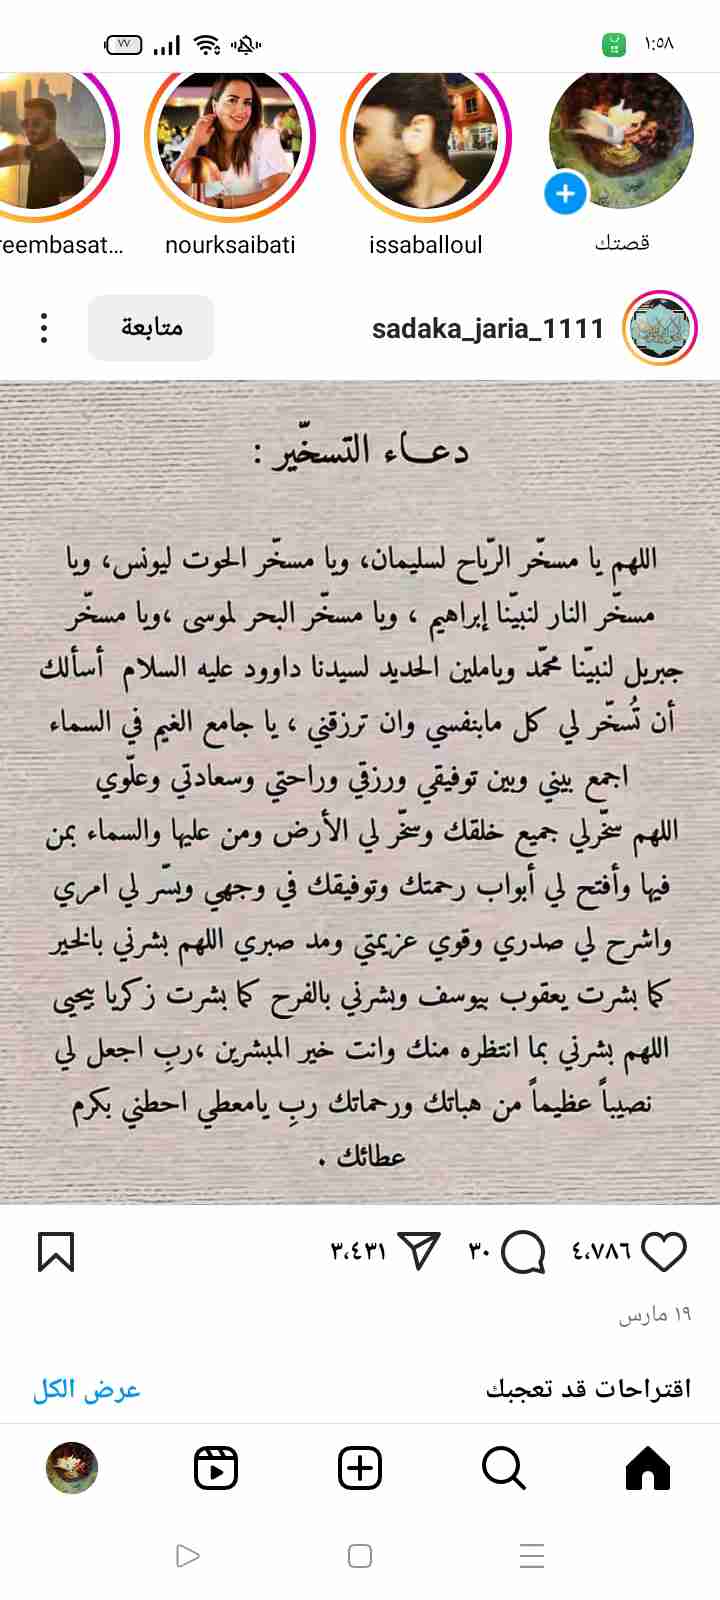 ٧٧
١:٥٨
reembasat...
nourksaibati
issaballoul
قصتك
متابعة
sadaka_jaria_1111
دعاء التسخّير :
اللهم يا مسخّر الرّياح لسليمان، ويا مسخّر الحوت ليونس، ويا
مسخّر النار لنبيّنا إبراهيم ، ويا مسخّر البحر لموسى ،ويا مسخّر
جبريل لنبيّنا محمّد وياملين الحديد لسيدنا داوود عليه السلام أسألك
أن تُسخّر لي كل مابنفسي وان ترزقني ، يا جامع الغيم في السماء
اجمع بيني وبين توفيقي ورزقي وراحتي وسعادتي وعلّوي
اللهم سخّرلي جميع خلقك وسخّر لي الأرض ومن عليها والسماء بمن
فيها وأفتح لي أبواب رحمتك وتوفيقك في وجهي ويسّر لي امري
واشرح لي صدري وقوي عزيمتي ومد صبري اللهم بشرني بالخير
كما بشرت يعقوب بيوسف وبشرني بالفرح كما بشرت زكريا بيحيى
اللهم بشرني بما انتظره منك وانت خير المبشرين ،ربِ اجعل لي
نصيباً عظيماً من هباتك ورحماتك ربِ يامعطي احطني بكرم
عطائك .
٤،٧٨٦ ٣٠ ٣،٤٣١
١٩ مارس
اقتراحات قد تعجبك
عرض الكل